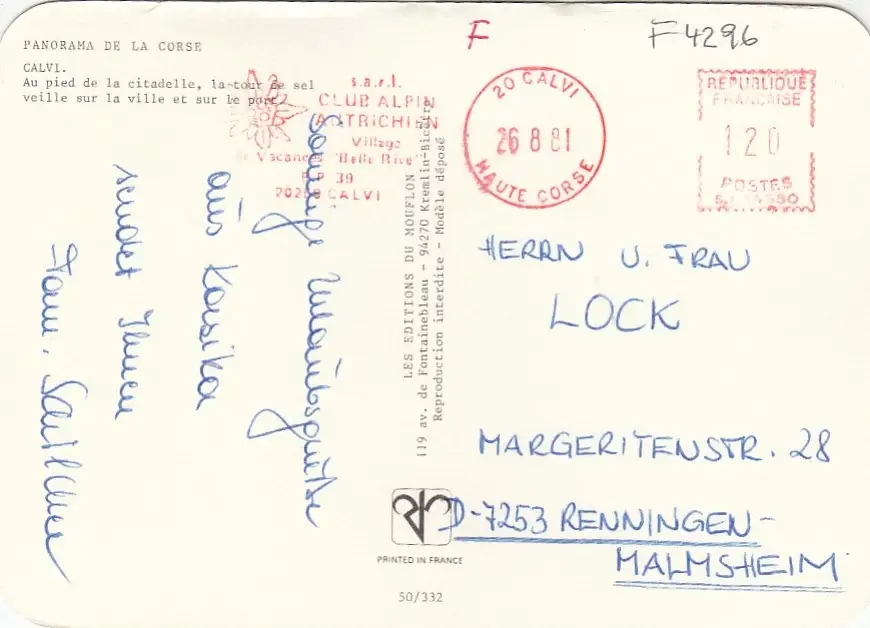 PANORAMA DE LA CORSE
CALVI.
Au pied de la citadelle, la tour de sel
veille sur la ville et sur le port.
s.a.r.l.
CLUB ALPIN
AUTRICHIEN
Village
de Vacances "Belle Rive"
B P 39
20260 CALVI
sonnige Urlaubsgrüße
aus Korsika
sendet Ihnen
Fam.
LES EDITIONS DU MOUFLON
119 av. de Fontainebleau - 94270 Kremlin-Bicêtre
Reproduction interdite - Modèle déposé
PRINTED IN FRANCE
50/332
F
F4296
20 CALVI
26 8 81
HAUTE CORSE
REPUBLIQUE
FRANCAISE
120
POSTES
HERRN U. FRAU
LOCK
MARGERITENSTR. 28
D-7253 RENNINGEN-
MALMSHEIM